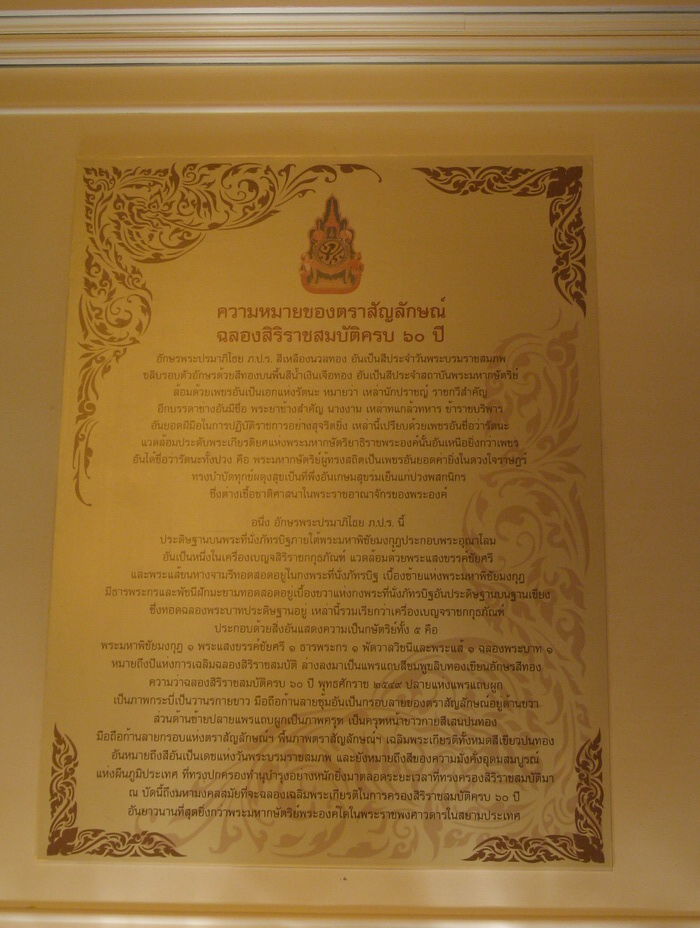 ความหมายของตราสัญลักษณ์
ฉลองสิริราชสมบัติครบ ๖๐ ปี
อักษรพระปรมาภิไธย ภ.ป.ร. สีเหลืองนวลทอง อันเป็นสีประจำวันพระบรมราชสมภพ
ขลิบรอบตัวอักษรด้วยสีทองบนพื้นสีน้ำเงินเจือทอง อันเป็นสีประจำสถาบันพระมหากษัตริย์
ล้อมด้วยเพชรอันเป็นเอกแห่งรัตนะ หมายวา เหล่านักปราชญ์ ราชกวีสำคัญ
อีกบรรดาช่างอันมีชื่อ พระยาช้างสำคัญ นางงาม เหล่าทแกล้วทหาร ข้าราชบริพาร
อันยอดฝีมือในการปฏิบัติราชการอย่างสุจริตยิ่ง เหล่านี้เปรียบด้วยเพชรอันชื่อว่ารัตนะ
แวดล้อมประดับพระเกียรติยศแห่งพระมหากษัตริยาธิราชพระองค์นั้นอันเหนือยิ่งกว่าเพชร
อันได้ชื่อว่ารัตนะทั้งปวง คือ พระมหากษัตริย์ผู้ทรงสถิตเป็นเพชรอันยอดค่ายิ่งในดวงใจราษฎร์
ทรงบำบัดทุกข์ผดุงสุขเป็นที่พึ่งอันเกษมสุขร่มเย็นแก่ปวงพสกนิกร
ซึ่งต่างเชื้อชาติศาสนาในพระราชอาณาจักรของพระองค์
อนึ่ง อักษรพระปรมาภิไธย ภ.ป.ร. นี้
ประดิษฐานบนพระที่นั่งภัทรบิฐภายใต้พระมหาพิชัยมงกุฎประกอบพระอุณาโลม
อันเป็นหนึ่งในเครื่องเบญจสิริราชกกุธภัณฑ์ แวดล้อมด้วยพระแสงขรรค์ชัยศรี
และพระแส้ขนหางจามรีทอดสอดอยู่ในกงพระที่นั่งภัทรบิฐ เบื้องซ้ายแห่งพระมหาพิชัยมงกุฎ
มีธารพระกรและพัชนีฝักมะขามทอดสอดอยู่เบื้องขวาแห่งกงพระที่นั่งภัทรบิฐอันประดิษฐานบนฐานเขียง
ซึ่งทอดฉลองพระบาทประดิษฐานอยู่ เหล่านี้รวมเรียกว่าเครื่องเบญจราชกกุธภัณฑ์
ประกอบด้วยสิ่งอันแสดงความเป็นกษัตริย์ทั้ง ๕ คือ
พระมหาพิชัยมงกุฎ ๑ พระแสงขรรค์ชัยศรี ๑ ธารพระกร ๑ พัดวาลวิชนีและพระแส้ ๑ ฉลองพระบาท ๑
หมายถึงปีแห่งการเฉลิมฉลองสิริราชสมบัติ ล่างลงมาเป็นแพรแถบสีชมพูขลิบทองเขียนอักษรสีทอง
ความว่าฉลองสิริราชสมบัติครบ ๖๐ ปี พุทธศักราช ๒๕๔๙ ปลายแห่งแพรแถบผูก
เป็นภาพกระบี่เป็นวานรกายขาว มือถือก้านลายซุ้มอันเป็นกรอบลายของตราสัญลักษณ์อยู่ด้านขวา
ส่วนด้านซ้ายปลายแพรแถบผูกเป็นภาพครุฑ เป็นครุฑหน้าขาวกายสีเสนปนทอง
มือถือก้านลายกรอบแห่งตราสัญลักษณ์ฯ พื้นภาพตราสัญลักษณ์ฯ เฉลิมพระเกียรติทั้งหมดสีเขียวปนทอง
อันหมายถึงสีอันเป็นเดชแห่งวันพระบรมราชสมภพ และยังหมายถึงสีของความมั่งคั่งอุดมสมบูรณ์
แห่งผืนภูมิประเทศ ที่ทรงปกครองทำนุบำรุงอย่างหนักยิ่งมาตลอดระยะเวลาที่ทรงครองสิริราชสมบัติมา
ณ บัดนี้ถึงมหามงคลสมัยที่จะฉลองเฉลิมพระเกียรติในการครองสิริราชสมบัติครบ ๖๐ ปี
อันยาวนานที่สุดยิ่งกว่าพระมหากษัตริย์พระองค์ใดในพระราชพงศาวดารในสยามประเทศ